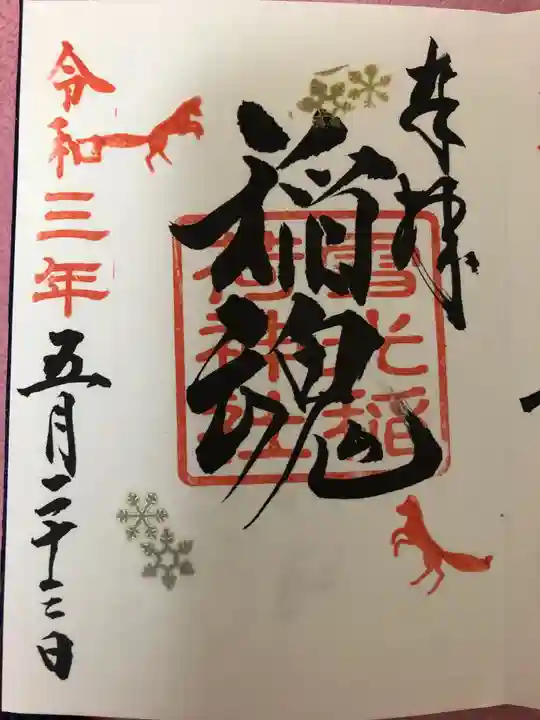 奉拝
稲魂
雪光稲
荷神社
令和三年五月二十三日